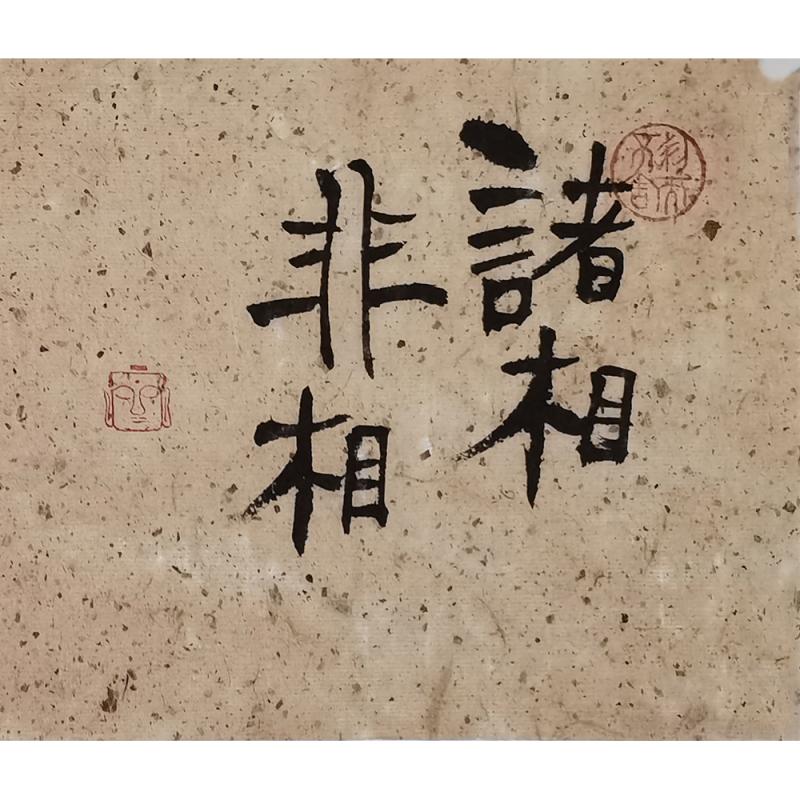 諸相
非相